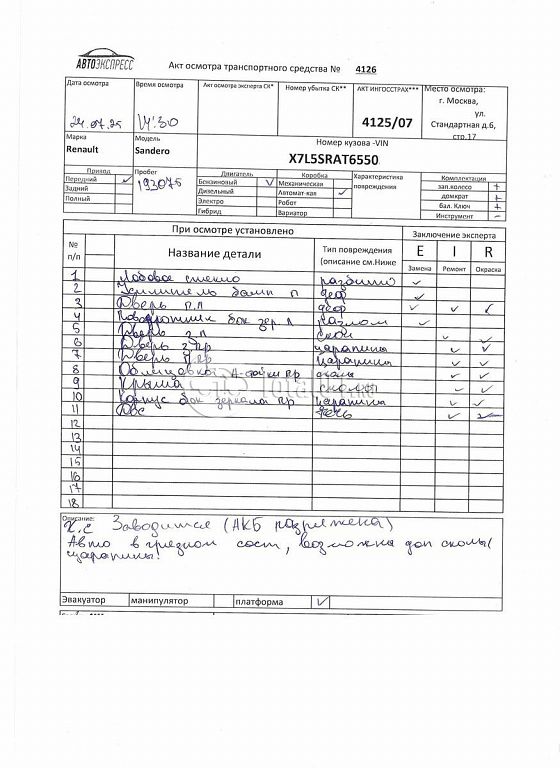 АВТОЭКСПРЕСС
Акт осмотра транспортного средства № 4126
Дата осмотра
24.07.25
Время осмотра
14:30
Акт осмотре эксперта СК*
Номер убытка СК**
АКТ ИНГОССТРАХ***
4125/07
Место осмотра:
г. Москва,
ул.
Стандартная д.6,
стр.17
Марка
Renault
Модель
Sandero
Номер кузова -VIN
X7L5SRAT6550
Привод
Передний ✓
Задний
Полный
Пробег
193075
Двигатель
Бензиновый ✓
Дизельный
Электро
Гибрид
Коробка
Механическая
Автомат-кая ✓
Робот
Вариатор
Характеристика
повреждения
Комплектация
зап.колесо +
домкрат +
бал. Ключ +
Инструмент -
При осмотре установлено
Заключение эксперта
№
п/п
Название детали
Тип повреждения
(описание см.Ниже
E I R
Замена Ремонт Окраска
1 Лобовое стекло разбито ✓
2 Усилитель бамп п деф ✓
3 Дверь п.л деф ✓ ✓
4 Поворотник бок зер л разлом ✓
5 Дверь з л ✓ ✓
6 Дверь з пр царапины ✓ ✓
7 Дверь п пр царапины ✓ ✓
8 Облицовка А-стойки пр сколы ✓ ✓
9 Крыша сколы ✓ ✓
10 Корпус бок зеркала пр царапина ✓ ✓
11 ДВС течь ✓
12
13
14
15
16
17
18
Описание:
Х.с Заводится (АКБ разряжена)
Авто в грязном сост, возможна доп сколы/
царапины!
Эвакуатор манипулятор платформа ✓